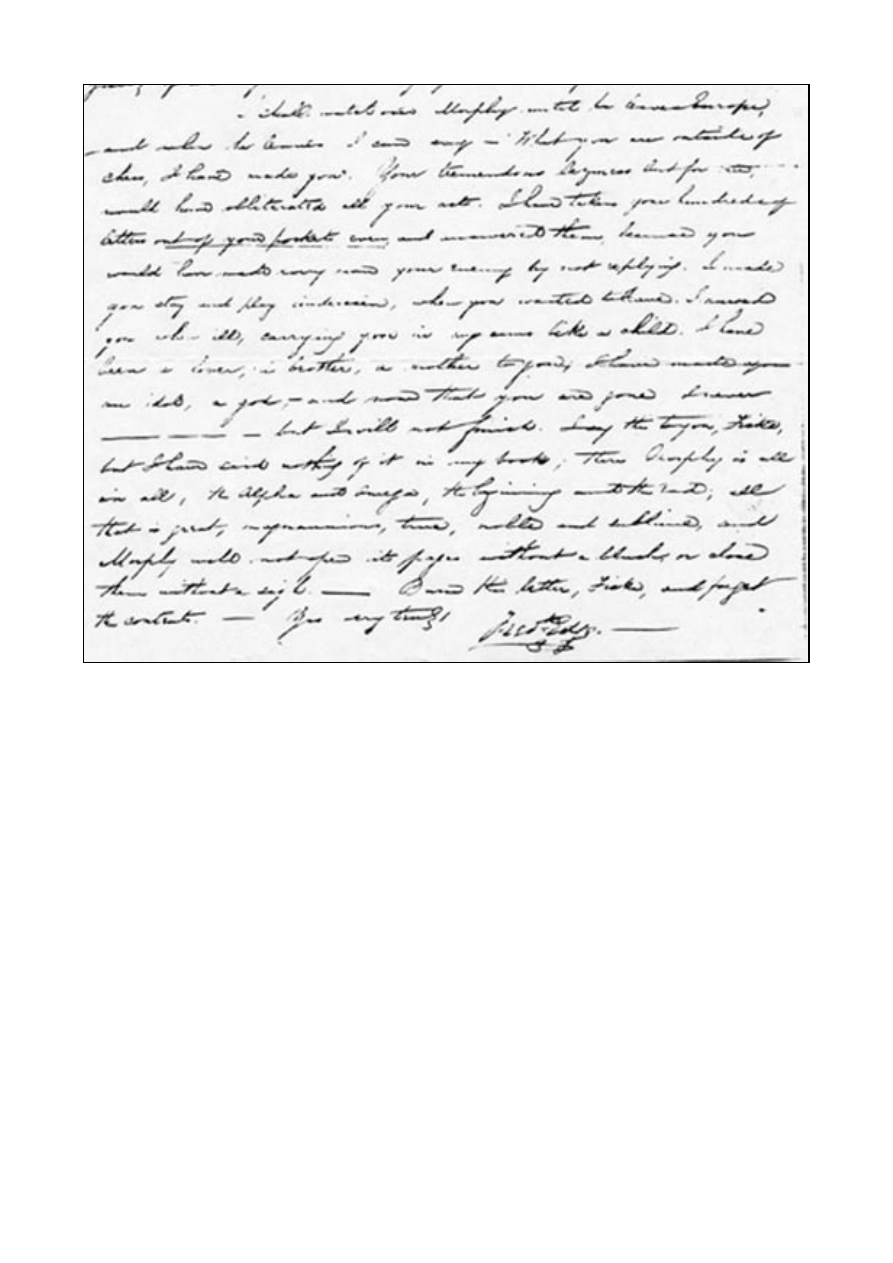 I shall watch over Morphy until he leaves Europe,
and when he leaves I can say – "What you are outside of
chess, I have made you. Your tremendous laziness but for me,
would have obliterated all your acts. I have taken your hundreds of
letters out of your pockets even, and answered them, because you
would have made every man your enemy by not replying. I made
you stay and play Anderssen, when you wanted to leave. I nursed
you when ill, carrying you in my arms like a child. I have
been a lover, a brother, a mother to you; I have made you
an idol, a god, – and now that you are gone I never
— — — – but I will not finish. I say this to you, Fiske,
but I have said nothing of it in my book; there Morphy is all
in all, the Alpha and Omega, the beginning and the end; all
that is great, magnanimous, true, noble and sublime, and
Morphy will not open its pages without a blush, or close
them without a sigh. — Burn this letter, Fiske, and forget
the contents. — Yrs very truly
Fredk Edge. —